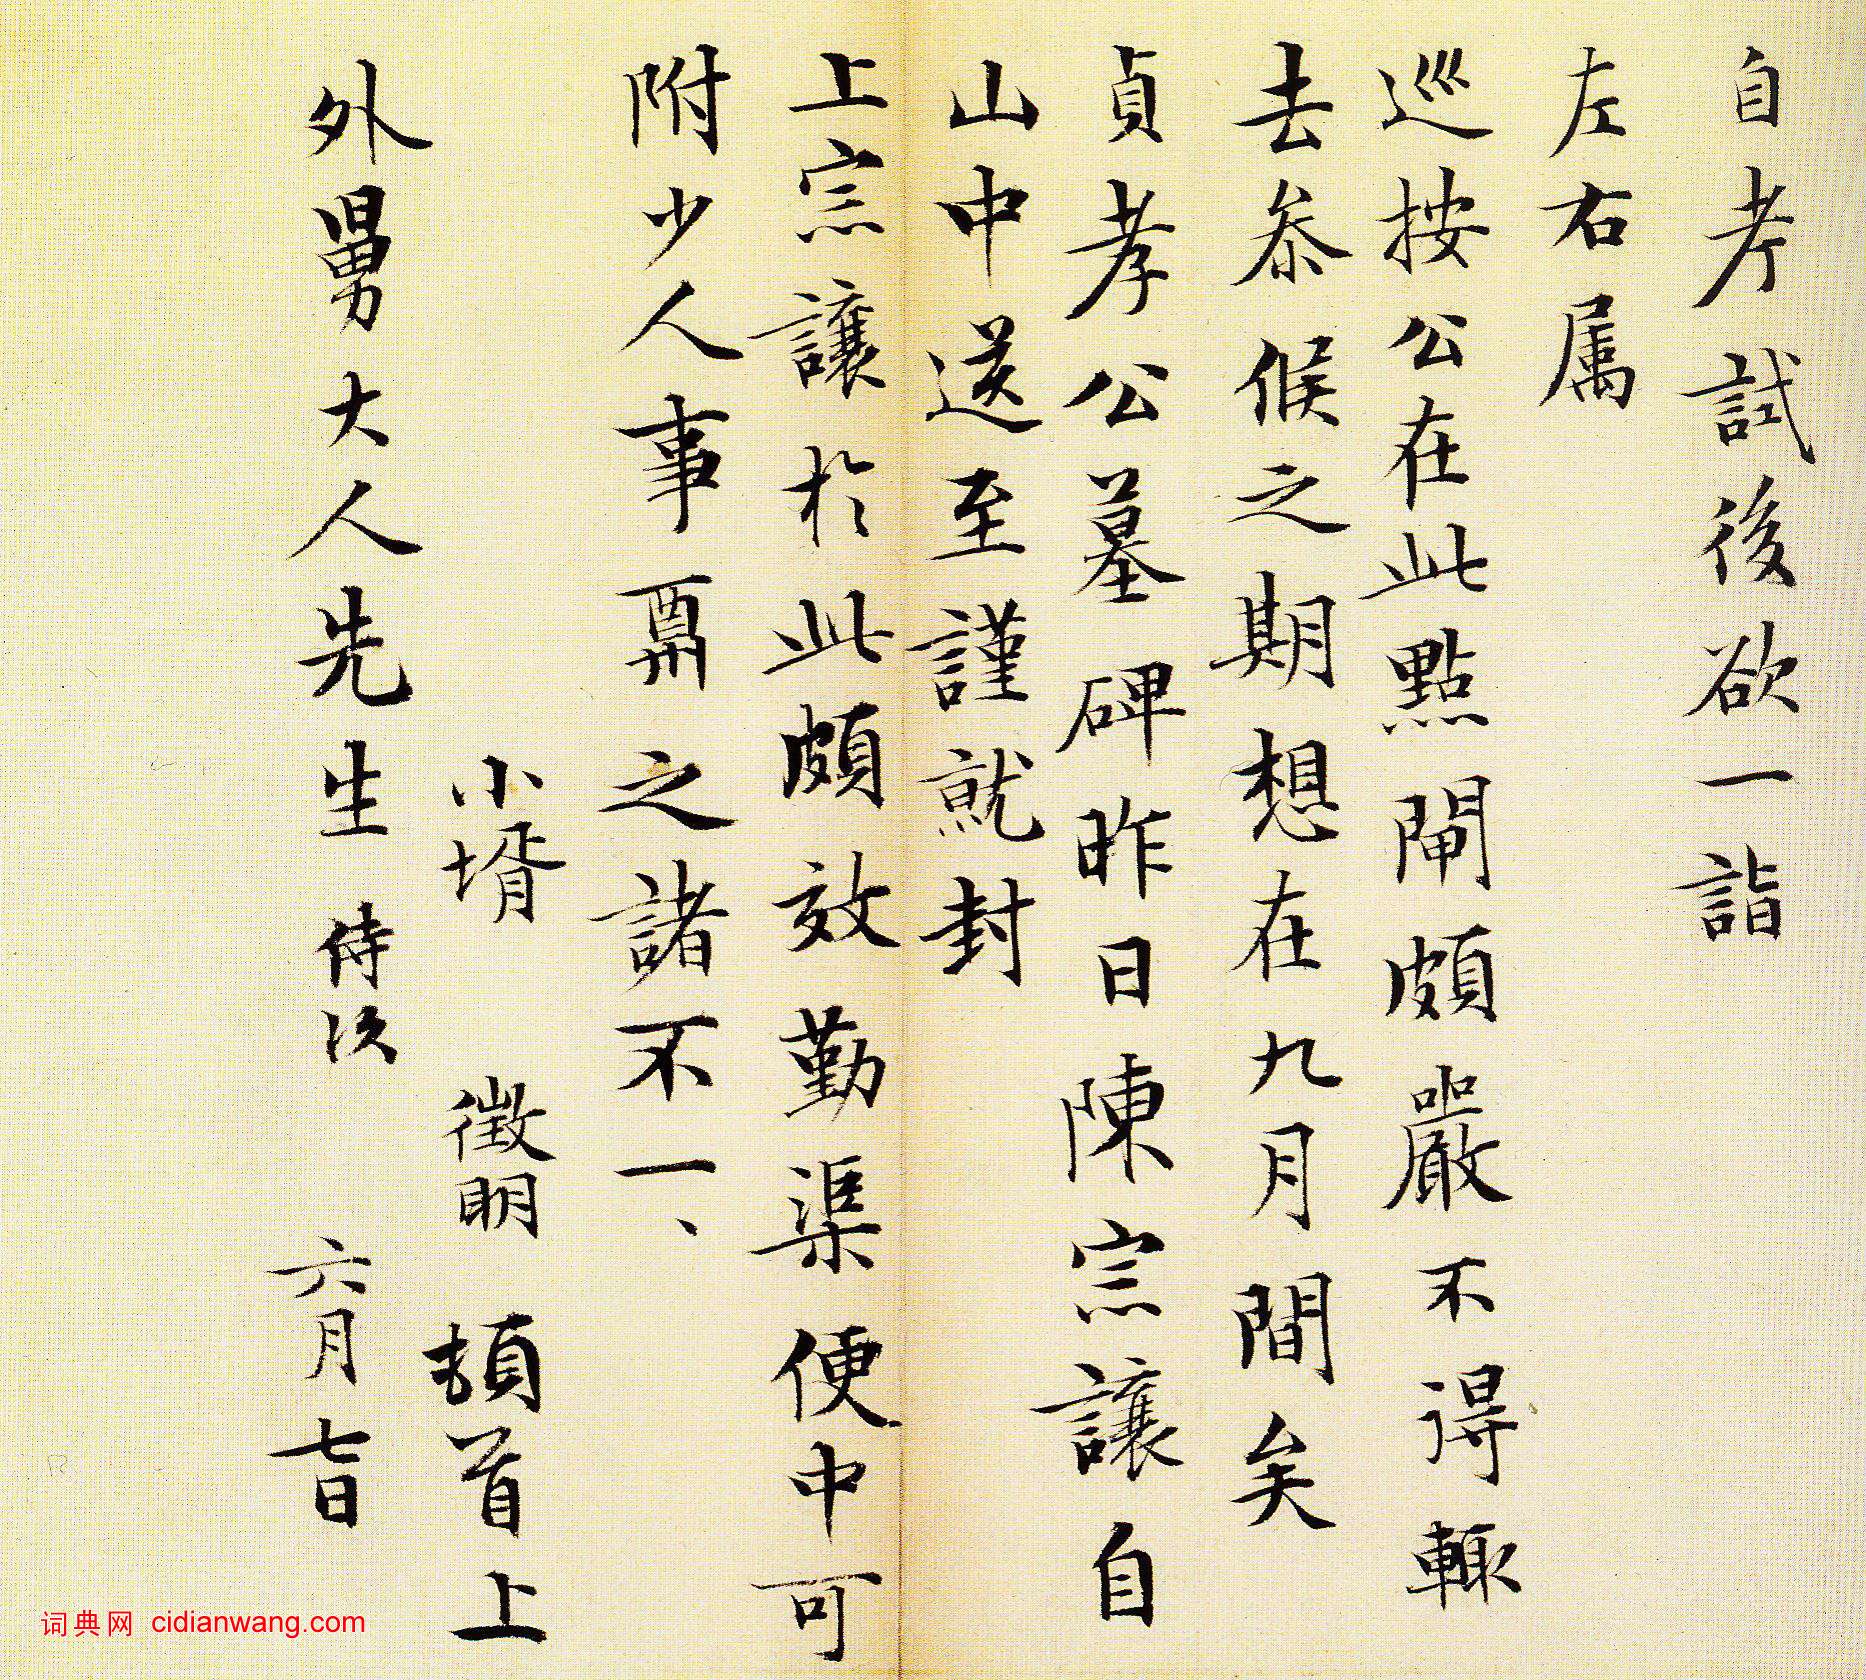 自考試後欲一詣
左右属
巡按公在此點閘頗嚴不得輙
去叅候之期想在九月間矣
貞孝公墓碑昨日陳宗讓自
山中送至謹就封
上宗讓於此頗效勤渠便中可
附少人事酬之諸不一、
小壻 徵明 頓首上
外舅大人先生 侍次 六月七日
词典网 cidianwang.com